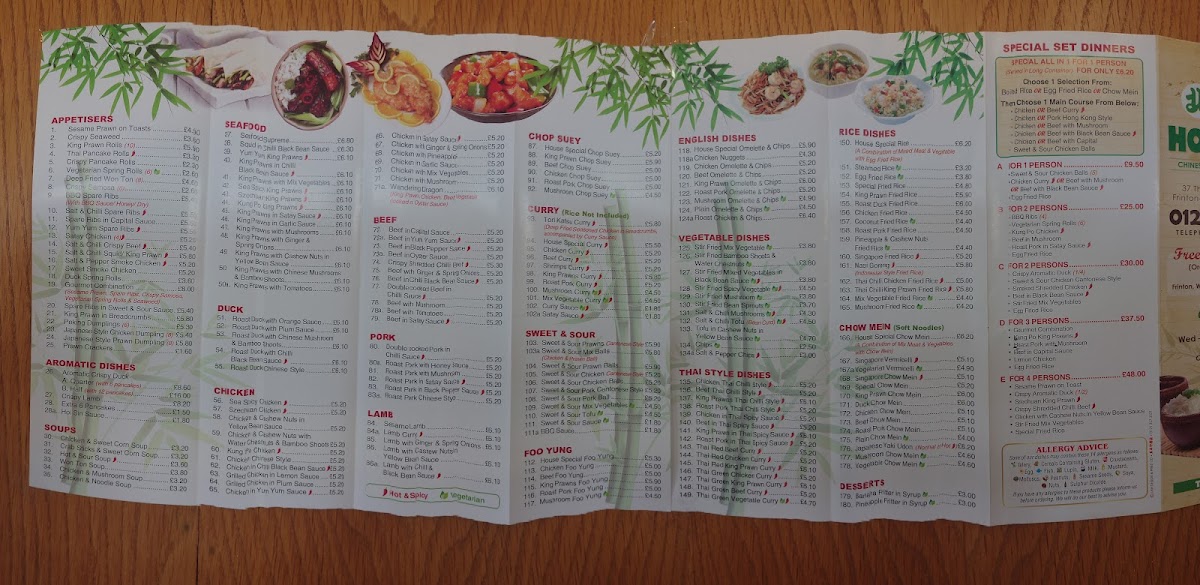 APPETISERS
1. Sesame Prawn on Toasts
2. Crispy Seaweed
3. King Prawn Rolls (10)
4. Thai Pancake Rolls
5. Crispy Pancake Rolls
6. Vegetarian Spring Rolls (8)
7. Deep Fried Won Ton (8)
9. BBQ Spare Ribs
10. Salt & Chilli Spare Ribs
11. Spare Ribs in Capital Sauce
12. Yum Yum Spare Ribs
13. Salt & Chilli Chicken
14. Salt & Chilli Crispy Beef
15. Salt & Chilli Spicy King Prawn
16. Salt & Pepper Smoke Chicken
17. Sweet Smoke Chicken
18. Duck Spring Rolls
19. Gourmet Combination
20. Spare Ribs in Sweet & Sour Sauce
21. King Prawn in Breadcrumbs
22. Peking Dumplings
23. Japanese Style Chicken Dumpling
24. Japanese Style Prawn Dumpling
25. Prawn Crackers £1.60
AROMATIC DISHES
26. Aromatic Crispy Duck
27. Crispy Lamb
28. Extra 6 Pancakes
28a. Hoi Sin
SOUPS
30. Chicken & Sweet Corn Soup £3.20
31. Crab Meat & Sweet Corn Soup
32. Hot & Sour Soup
33. Won Ton Soup
34. Chicken & Mushroom Soup £3.20
35. Chicken & Noodle Soup £3.20
SEAFOOD
37. Seafood Supreme £6.80
38. Squid in Chilli Black Bean Sauce £6.80
39. Yum Yum King Prawns £6.10
40. King Prawns in Chilli
Black Bean Sauce £6.10
41. King Prawns with Mixed Vegetables £6.10
42. Sea Spicy King Prawns £6.10
43. Kung Po King Prawns £6.10
44. King Prawns in Satay Sauce £6.10
45. King Prawns in Garlic Sauce £6.10
46. King Prawns with Mushrooms £6.10
47. King Prawns with Ginger &
Spring Onions £6.10
48. King Prawns with Cashew Nuts in
Yellow Bean Sauce £6.10
50. King Prawns with Chinese Mushrooms
& Bamboo Shoots £6.10
50a. King Prawns with Tomatoes £6.10
DUCK
51. Roast Duck with Orange Sauce £5.20
52. Roast Duck with Plum Sauce £5.20
53. Roast Duck with Chinese Mushroom
& Bamboo Shoots £5.20
54. Roast Duck with Chilli
Black Bean Sauce £5.20
55. Roast Duck Chinese Style £5.20
CHICKEN
56. Sea Spicy Chicken £5.20
57. Szechuan Chicken £5.20
58. Chicken & Cashew Nuts in
Yellow Bean Sauce £5.20
59. Chicken & Cashew Nuts with
Water Chestnuts & Bamboo Shoots £5.20
60. Kung Po Chicken £5.20
61. Chicken Chinese Style £5.20
62. Chicken in Chilli Black Bean Sauce £5.20
63. Grilled Chicken in Lemon Sauce £5.20
64. Grilled Chicken in Plum Sauce £5.20
65. Chicken in Yum Yum Sauce £5.20
66. Chicken in Satay Sauce £5.20
67. Chicken with Ginger & Spring Onions £5.20
68. Chicken with Pineapple £5.20
69. Chicken in Garlic Sauce £5.20
70. Chicken with Mix Vegetables £5.20
71. Chicken with Mushroom £5.20
71a. Wandering Dragon
BEEF
72. Beef in Capital Sauce £5.20
73. Beef in Yum Yum Sauce £5.20
73. Beef in Black Pepper Sauce £5.20
73a. Beef in Oyster Sauce £5.20
74. Crispy Shredded Chilli Beef £5.30
75. Beef with Ginger & Spring Onions £5.20
76. Beef in Chilli Black Bean Sauce £5.20
77. Double-cooked Beef in
Chilli Sauce £5.20
78. Beef with Mushroom £5.20
78. Beef with Tomatoes £5.20
79. Beef in Satay Sauce £5.20
PORK
80. Double-cooked Pork in
Chilli Sauce £5.20
81. Roast Pork with Honey More £5.20
82. Roast Pork with Mushroom £5.20
82. Roast Pork in Satay Sauce £5.20
83. Roast Pork in Black Pepper Sauce £5.20
83a. Roast Pork Chinese Style £5.20
LAMB
84. Sesame Lamb £6.10
85a. Lamb Curry £6.10
85. Lamb with Ginger & Spring Onions £6.10
86. Lamb with Cashew Nuts in
Yellow Bean Sauce £6.10
86a. Lamb with Chilli &
Black Bean Sauce £6.10
Hot & Spicy Vegetarian
CHOP SUEY
87. House Special Chop Suey £5.20
88. King Prawn Chop Suey £5.80
89. Beef Chop Suey £5.20
90. Chicken Chop Suey £5.20
91. Roast Pork Chop Suey £5.20
92. Mushroom Chop Suey £4.50
CURRY (Rice Not Included)
93. Tori Katsu Curry £5.80
94. House Special Curry £5.20
95. Chicken Curry £5.20
96. Beef Curry £5.20
97. Shrimps Curry £5.20
98. King Prawn Curry £5.80
99. Roast Pork Curry £5.20
100. Mushroom Curry £4.50
101. Mix Vegetable Curry £4.50
102. Curry Sauce £1.80
102a Satay Sauce £1.80
SWEET & SOUR
103. Sweet & Sour Pawns Cantonese Style
103a. Sweet & Sour Mix Balls
(Chicken & Prawn Ball)
104. Sweet & Sour Prawn Balls
105. Sweet & Sour Chicken Cantonese Style
106. Sweet & Sour Chicken Balls
107. Sweet & Sour Pork Cantonese Style
108. Sweet & Sour Pork Ball
109. Sweet & Sour Mix Vegetable
110. Sweet & Sour Tofu
111. Sweet & Sour Sauce
111a BBQ Sauce £1.80
FOO YUNG
112. House Special Foo Yung £5.30
113. Chicken Foo Yung £5.20
114. Beef Foo Yung £5.20
115. King Prawns Foo Yung £5.80
116. Roast Pork Foo Yung £5.20
117. Mushroom Foo Yung £4.50
ENGLISH DISHES
118. House Special Omelette & Chips £5.90
118a Chicken Nuggets
119. Chicken Omelette & Chips £5.20
120. Beef Omelette & Chips £5.20
121. King Prawn Omelette & Chips £5.80
122. Roast Pork Omelette & Chips £5.20
123. Mushroom Omelette & Chips £4.90
124. Plain Omelette & Chips £4.50
124a Roast Chicken & Chips £5.40
VEGETABLE DISHES
125. Stir Fried Mix Vegetable £3.80
126. Stir Fried Bamboo Shoots &
Water Chestnuts £3.80
127. Stir Fried Mixed Vegetables in
Black Bean Sauce £3.80
128. Stir Fried Mushroom £3.80
129. Stir Fried Spicy Vegetable £3.80
130. Stir Fried Bean Sprouts £3.80
131. Salt & Chilli Mushroom £4.50
132. Salt & Chilli Tofu
133. Tofu in Cashew Nuts in
Yellow Bean Sauce £4.70
134. Chips £2.30
135. Salt & Pepper Chips £3.30
THAI STYLE DISHES
136. Chicken Thai Chilli Style £5.20
136. Beef Thai Chilli Style £5.20
137. King Prawns Thai Chilli Style £6.10
138. Roast Pork Thai Chilli Style £5.20
139. Chicken in Thai Spicy Sauce £5.20
140. Beef in Thai Spicy Sauce £5.20
141. King Prawn in Thai Spicy Sauce £6.10
142. Roast Pork in Thai Spicy Sauce £5.20
143. Thai Red Chicken Curry £5.20
144. Thai Red Beef Curry £5.20
145. Thai Red King Prawn Curry £6.10
146. Thai Green Chicken Curry £5.20
147. Thai Green Beef Curry £5.20
148. Thai Green King Prawn Curry £6.10
149. Thai Green Vegetable Curry £4.70
RICE DISHES
150. House Special Rice £5.20
(A Combination of Mixed Meat & Vegetable
with Egg Fried Rice)
151. Steamed Rice £3.20
152. Egg Fried Rice £3.80
153. Special Fried Rice £4.80
154. King Prawn Fried Rice £5.90
155. Roast Duck Fried Rice £5.60
156. Chicken Fried Rice £4.50
157. Coconut Fried Rice £4.40
158. Roast Pork Fried Rice £4.50
159. Pineapple & Cashew Nuts
Fried Rice £4.40
160. Singapore Fried Rice £5.20
161. Nasi Goreng £5.80
(Indonesian Style Fried Rice)
162. Thai Chilli Chicken Fried Rice £5.20
163. Thai Chilli King Prawns Fried Rice £5.80
164. Mix Vegetable Fried Rice £4.40
165. Mushroom Fried Rice £4.40
CHOW MEIN (Soft Noodles)
166. House Special Chow Mein £6.20
(A Combination of Mixed Meat & Vegetable
with Chow Mein)
167. Singapore Vermicelli £5.30
167a Vegetarian Vermicelli £4.90
168. Singapore Chow Mein £5.10
169. Special Chow Mein £5.20
170. King Prawn Chow Mein £5.80
171. Duck Chow Mein £5.60
172. Chicken Chow Mein £5.10
173. Beef Chow Mein £5.10
174. Roast Pork Chow Mein £5.10
175. Plain Chow Mein £4.00
176. Japanese Yaki Udon (Normal or Hot) £5.20
177. Mushroom Chow Mein £4.60
178. Vegetable Chow Mein £4.60
DESSERTS
179. Banana Fritter in Syrup £3.00
180. Pineapple Fritter in Syrup £3.00
SPECIAL SET DINNERS
SPECIAL ALL IN 1 FOR 1 PERSON
(Served in Long Container) FOR ONLY £5.20
Choose 1 Selection From:
Boiled Rice OR Egg Fried Rice OR Chow Mein
Then Choose 1 Main Course From Below:
• Chicken OR Beef Curry
• Chicken OR Pork Hong Kong Style
• Chicken OR Beef with Mushroom
• Chicken OR Beef with Black Bean Sauce
• Chicken OR Beef with Capital
• Sweet & Sour Chicken Balls
A FOR 1 PERSON £9.50
• Sweet & Sour Chicken Balls (5)
• Chicken Curry OR Beef with Mushroom
OR Beef with Black Bean Sauce
• Egg Fried Rice
B FOR 2 PERSONS £25.00
• BBQ Ribs (4)
• Vegetarian Spring Rolls (6)
• Kung Po Chicken
• Beef in Mushroom
• Roast Pork in Satay Sauce
• Egg Fried Rice
C FOR 2 PERSONS £30.00
• Crispy Aromatic Duck (1/4)
• Sweet & Sour Chicken Cantonese Style
• Sichuan Shredded Chicken
• Beef in Black Bean Sauce
• Stir Fried Mix Vegetables
• Egg Fried Rice
D FOR 3 PERSONS £37.50
• Mixed Combination
• Kung Po King Prawns
• Roast Pork with Mushroom
• Beef in Capital Sauce
• Lemon Chicken
• Egg Fried Rice
E FOR 4 PERSONS £48.00
• Sesame Prawn on Toast
• Crispy Aromatic Duck (1/2)
• Szechuan King Prawn
• Crispy Shredded Chilli Beef
• Chicken with Cashew Nuts in Yellow Bean Sauce
• Stir Fried Mix Vegetables
• Special Fried Rice
ALLERGY ADVICE
If you have any allergies to these products please inform us
before ordering. We will do our best to advise you.
HO
CHINES
37 Th
Frinton
012
TELEP
Free
Frinton, W
Wed -